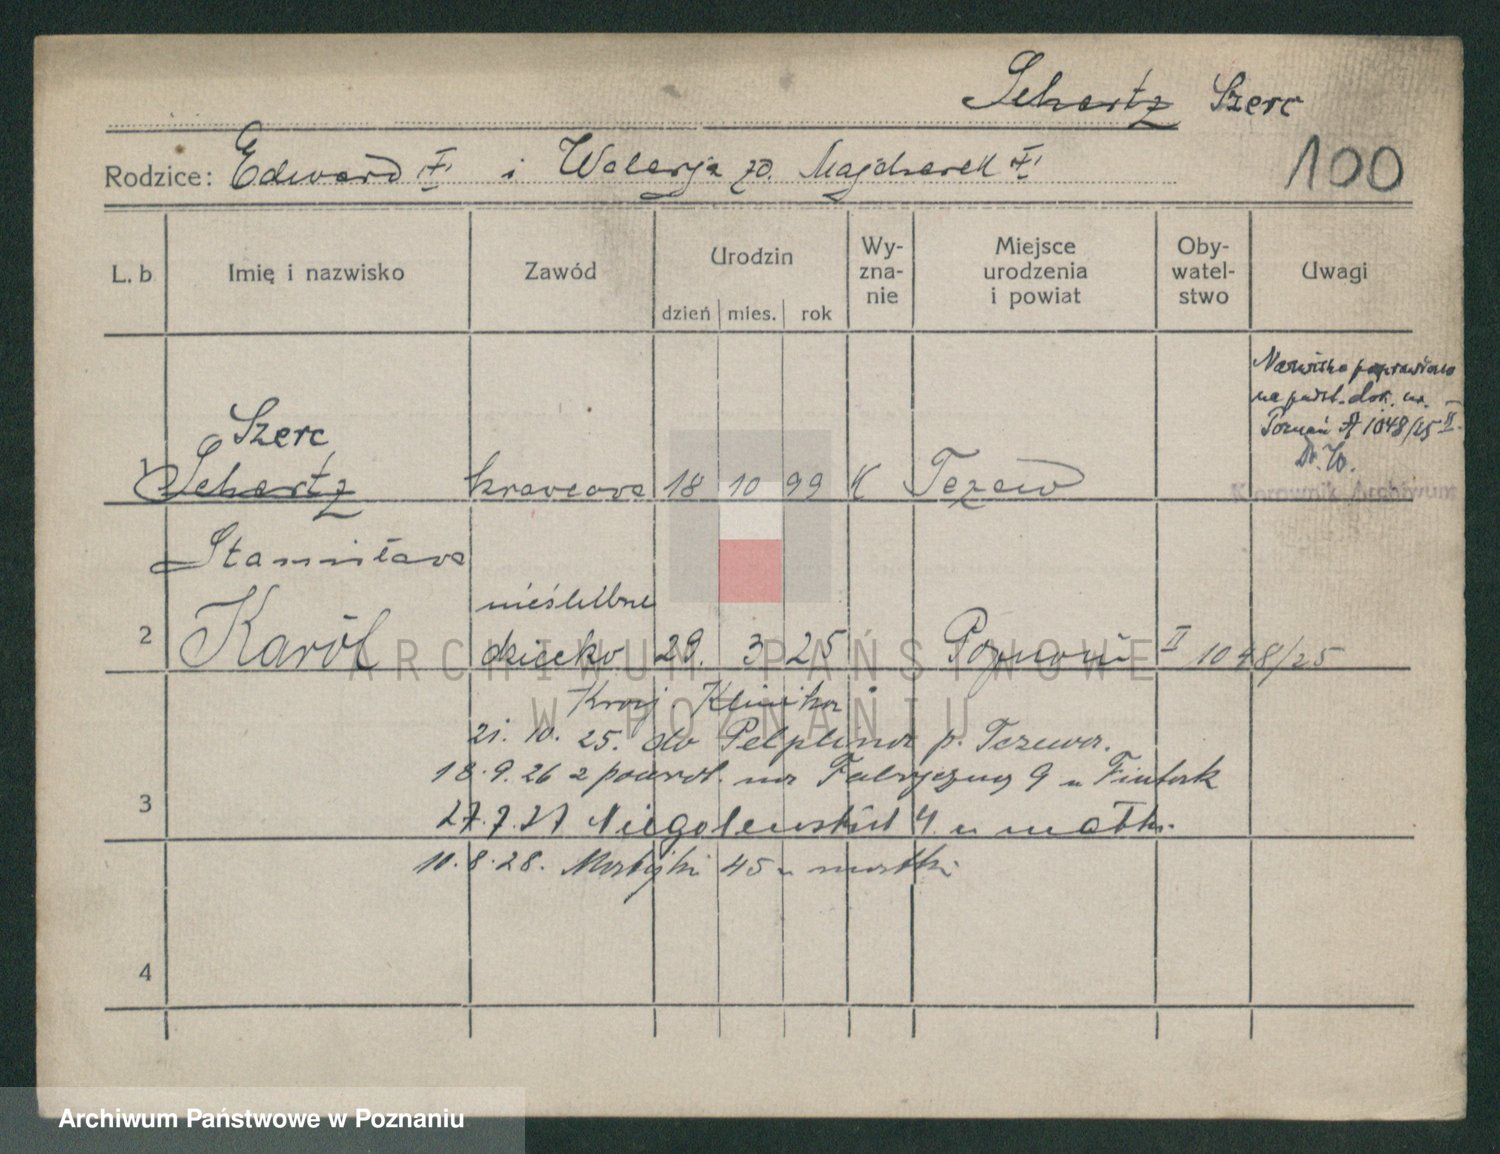 Schertz Szerc
Rodzice: Edward i Walerja zd. Majchrzak
100
L. b.
Imię i nazwisko
Zawód
Urodzin
dzień mies. rok
Wy-
zna-
nie
Miejsce
urodzenia
i powiat
Oby-
watel-
stwo
Uwagi
Nazwisko poprawiono
na podst. dok. ur.
Poznań A 1048/25 II
Kierownik Archiwum
Szerc
1 Schertz krawcowa 18 10 99 K Tczew
Stanisława
nieślubne
2 Karol dziecko 29. 3 25 Poznań II 1048/25
Kraj. Klinika
21. 10. 25. do Pelplina p. Tczewa.
18.9.26 z powrot. na Fabryczną 9 u
3
27.7.27 Niegolewskich 4 u matki.
10.8.28. 45 u matki
4
ARCHIWUM PAŃSTWOWE
W POZNANIU
Archiwum Państwowe w Poznaniu